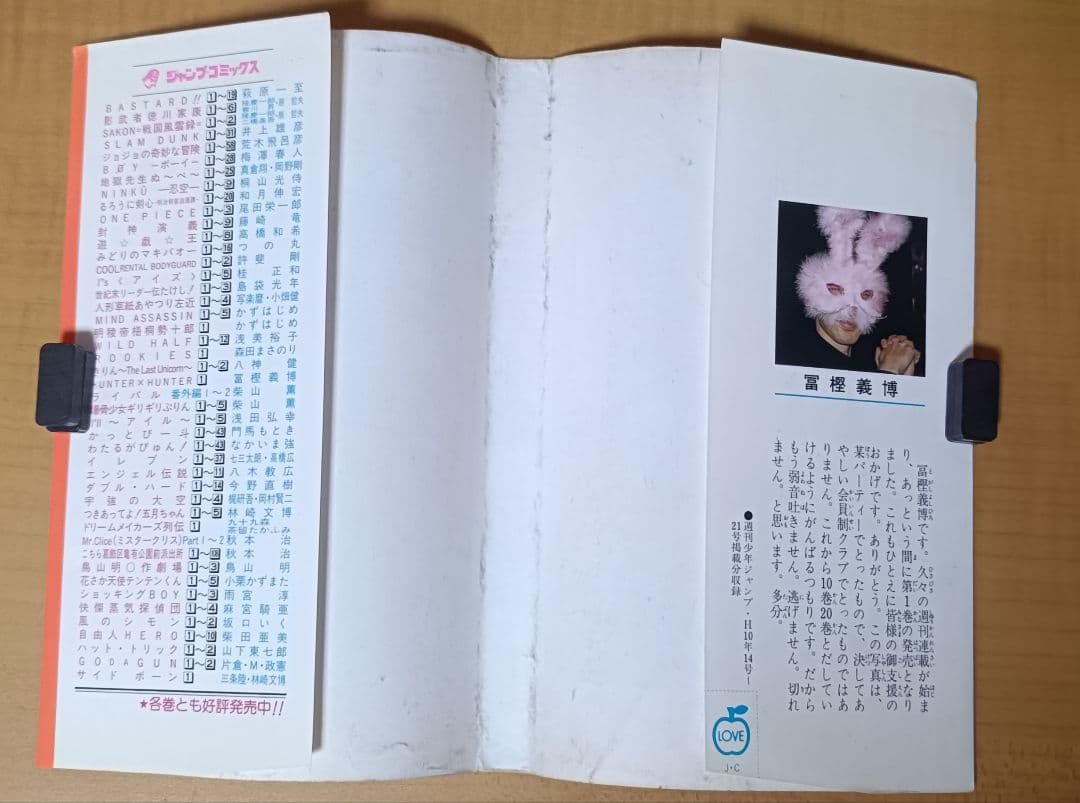 ジャンプコミックス
BASTARD!! 1〜19 萩原一至
影武者徳川家康
SAKON=戦国風雲録= 1〜2
SLAM DUNK 1〜31 井上雄彦
ジョジョの奇妙な冒険 荒木飛呂彦
BØY ―ボーイ― 梅澤春人
地獄先生ぬ〜べ〜 真倉翔・岡野剛
NINKŪ ―忍空― 1〜9 桐山光侍
るろうに剣心 1〜20 和月伸宏
ONE PIECE 1〜3 尾田栄一郎
封神演義 1〜9 藤崎竜
遊☆戯☆王 1〜8 高橋和希
みどりのマキバオー 1〜16 つの丸
COOL RENTAL BODYGUARD 1〜2 許斐剛
I"s〈アイズ〉 1〜5 桂正和
世紀末リーダー伝たけし! 1〜3 島袋光年
人形草紙あやつり左近 1〜4 写楽麿・小畑健
MIND ASSASSIN 1〜5 かずはじめ
明稜帝梧桐勢十郎 1 かずはじめ
WILD HALF 浅美裕子
ROOKIES 1 森田まさのり
きりん〜The Last Unicorn〜 1〜2 八神健
HUNTER×HUNTER 1 冨樫義博
ライバル 番外編1〜2 柴山薫
爆骨少女ギリギリぷりん 1〜5 柴山薫
I'll 〜アイル〜 1〜5 浅田弘幸
かっとび一斗 門馬もとき
わたるがぴゅん! 1〜43 なかいま強
イレブン 1〜37 七三太郎・高橋広
エンジェル伝説 1〜11 八木教広
ダブル・ハード 1〜14 今野直樹
宇強の大空 1〜4 梶研吾・岡村賢二
つきあってよ!五月ちゃん 1〜5 林崎文博
ドリームメイカーズ列伝 1 九十九森
Mr.Clice(ミスタークリス) Part1〜2 秋本治
こちら葛飾区亀有公園前派出所 秋本治
鳥山明○作劇場 1〜3 鳥山明
花さか天使テンテンくん 1〜5 小栗かずまた
ショッキングBOY 1〜3 雨宮淳
快傑蒸気探偵団 1〜4 麻宮騎亜
風のシモン 1〜2 坂口いく
自由人HERO 柴田亜美
ハット・トリック 1〜2 山下東七郎
GODAGUN 1〜2 片倉・M・政憲
サイドボーン 1 三条陸・林崎文博
★各巻とも好評発売中!!
冨樫義博
冨樫義博です。久々の週刊連載が始ま
り、あっという間に第1巻の発売となり
ました。これもひとえに皆様の御支援の
おかげです。ありがとう。この写真は、
某パーティーでとったもので、決してあ
やしい会員制クラブでとったものではあ
りません。これから10巻20巻とだしてい
けるようにがんばるつもりです。だから
もう弱音吐きません。逃げません。切れ
ません。と思います。多分。
●週刊少年ジャンプ・H10年14号〜
21号掲載分収録
LOVE
J・C